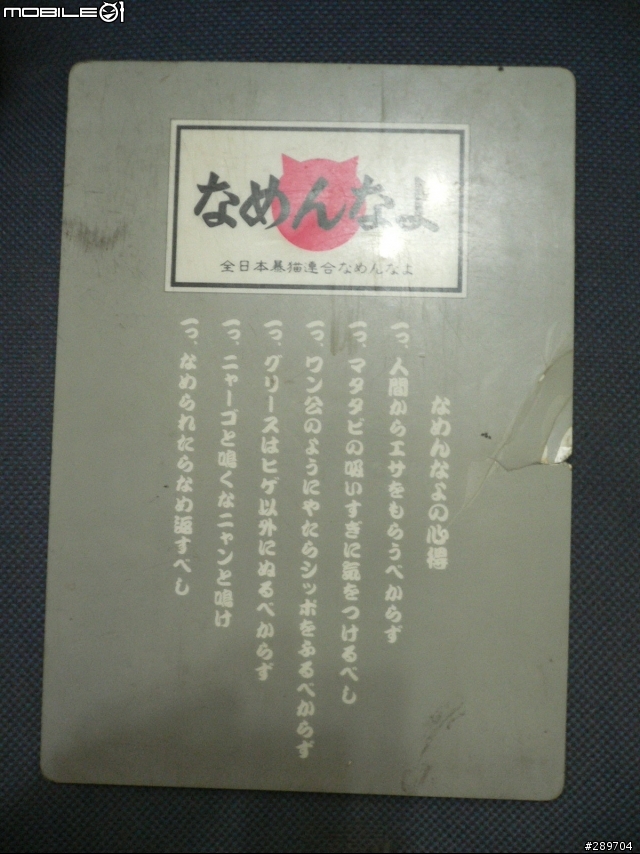 MOBILE01
なめんなよ
全日本暴猫連合なめんなよ
なめんなよの心得
一つ、人間からエサをもらうべからず
一つ、マタタビの吸いすぎに気をつけるべし
一つ、ワン公のようにやたらシッポをふるべからず
一つ、グリースはヒゲ以外にぬるべからず
一つ、ニャーゴと鳴くなニャンと鳴け
一つ、なめられたらなめ返すべし
#289704